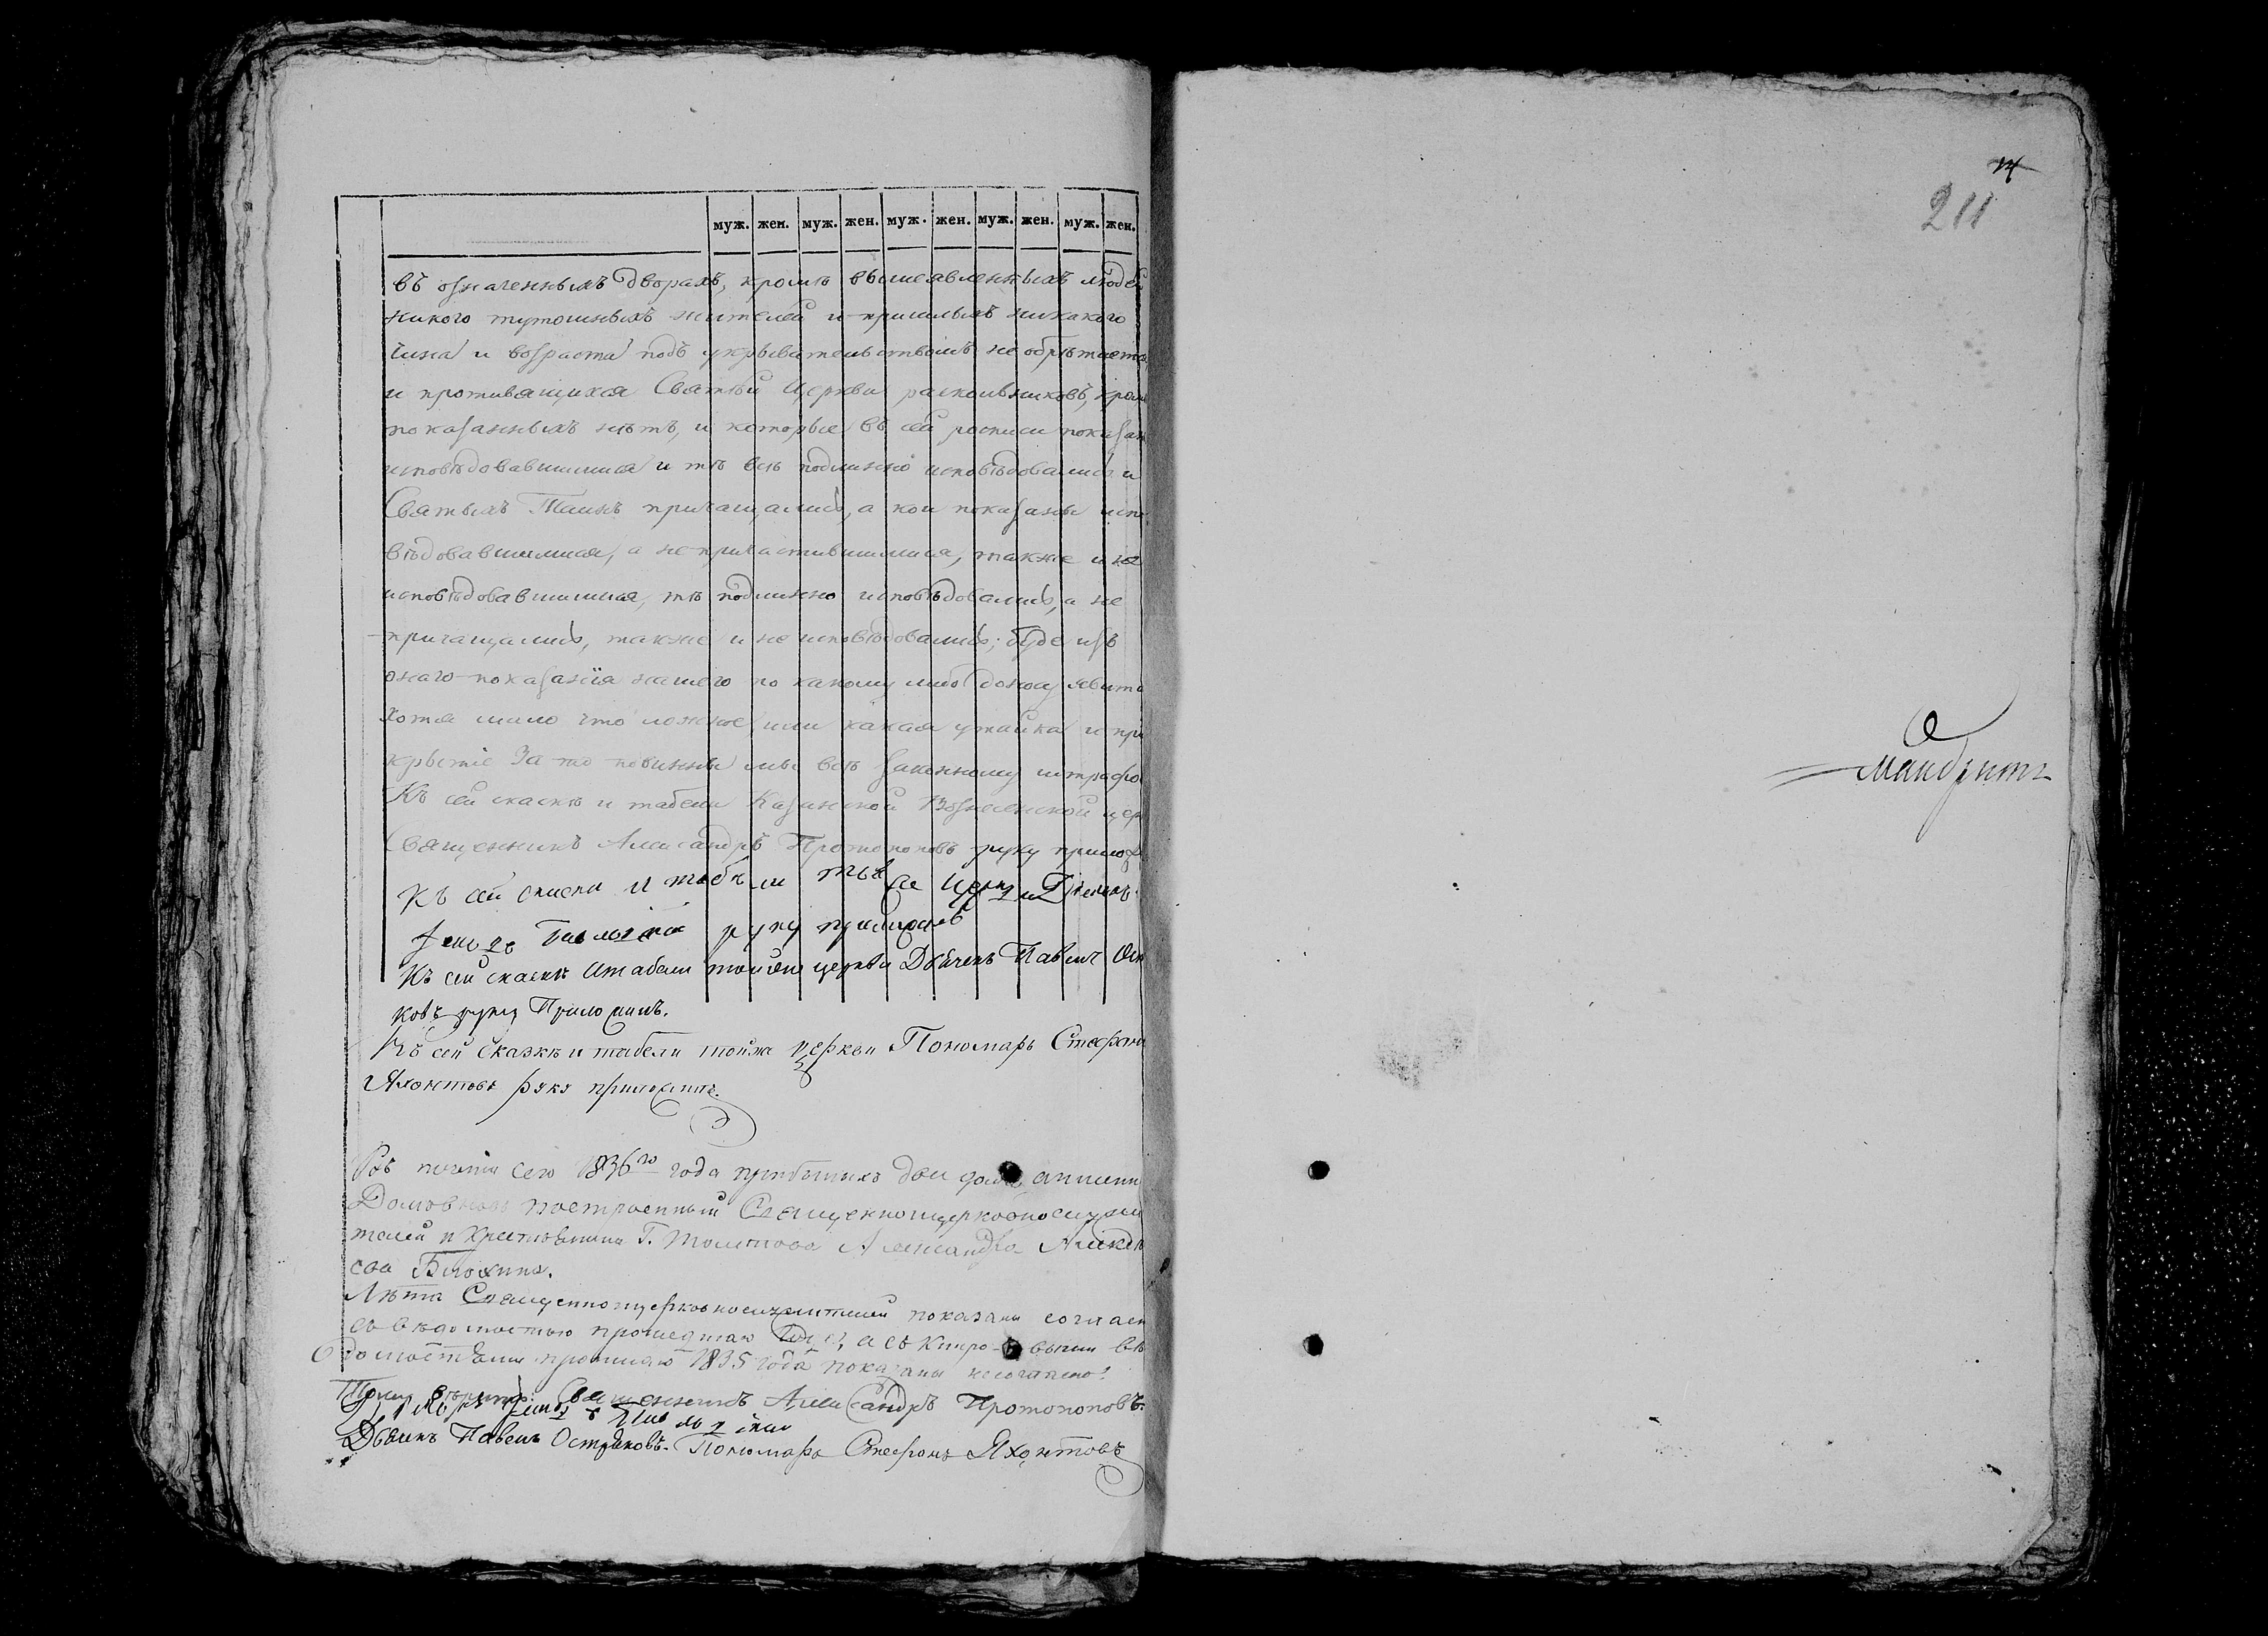 муж. жен. муж. жен. муж. жен. муж. жен. муж. жен.
въ означенныхъ дворахъ, кромѣ вышеявленныхъ людей
никого тутошныхъ жителей и пришлыхъ никакого
чина и возраста подъ укрывательствомъ не обрѣтаетс
и противящихся Святѣй Церкви раскольниковъ, кром
показанныхъ нѣтъ, и которые въ сей росписи показан
исповѣдовавшимися и тѣ всѣ подлинно исповѣдовались и
Святыхъ Таинъ причащались, а кои показаны испо
вѣдовавшимися, а не причастившимися, также и не
исповѣдовавшимися, тѣ подлинно исповѣдовались, а не
причащались, также и не исповѣдовались; буде изъ
онаго показанія нашего по какому либо доносу явит
хотя мало что ложное, или какая утайка и при
крытіе За то повинны мы всѣ законному штрафу
Къ сей сказкѣ и табели Казинской Вознесенской цер
Священникъ Александръ Протопоповъ руку прилож
Къ сей и табели руку приложилъ
Къ сей сказкѣ и табели тойже церкви Дьячекъ Павелъ Ост
ковъ руку Приложилъ.
Къ сей Сказкѣ и табели тойже церкви Пономарь Стефанъ
Яхонтовъ руку приложилъ.
сего 1836го года два дома, а именно
Домъ построенный Священноцерковнослужи
телей и Г. Толстова Александра Алексѣ
ева
Лѣта Священноцерковнослужителей показаны соглас
съ вѣдомостью прошедшаго года, а съ вѣ
домостями прошлаго 1835 года показаны несогласно.
Священникъ Александръ Протопоповъ.
Дьячекъ Павелъ Остряковъ. Пономарь Стефанъ Яхонтовъ
211